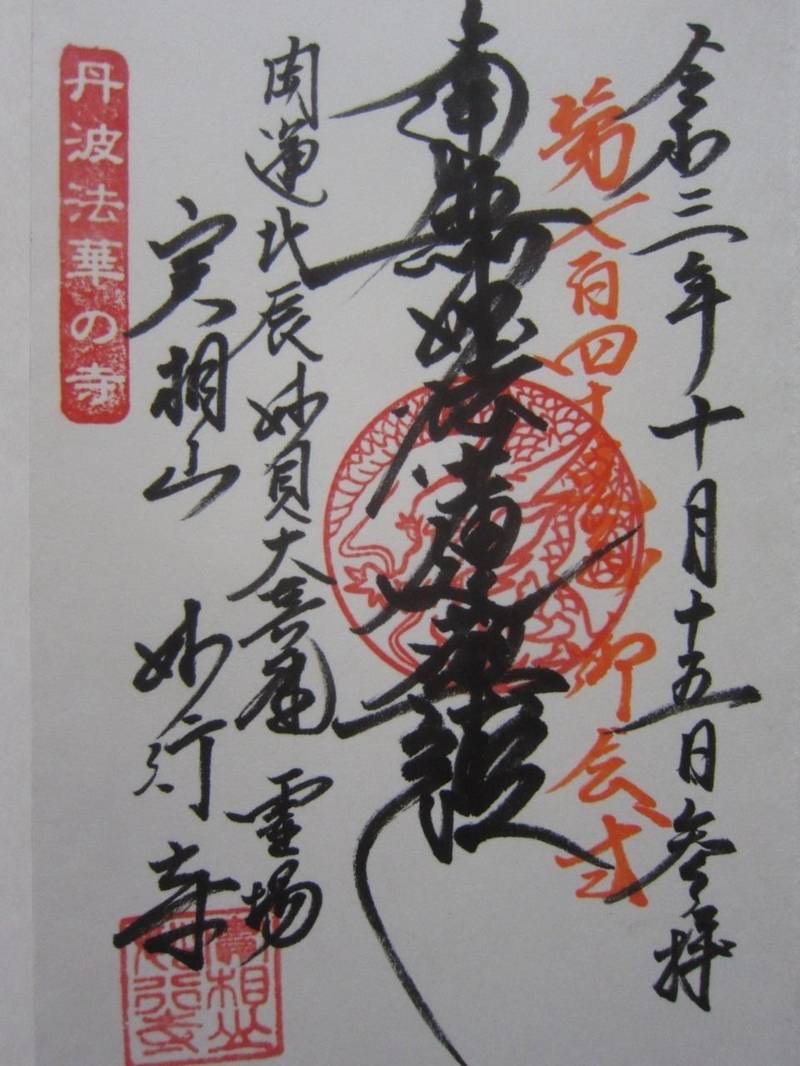 令和三年十月十五日参拝
第七百四十回御会式
南無妙法蓮華経
開運北辰妙見大菩薩 霊場
実相山 妙行寺
丹波法華の寺
實相山妙行寺